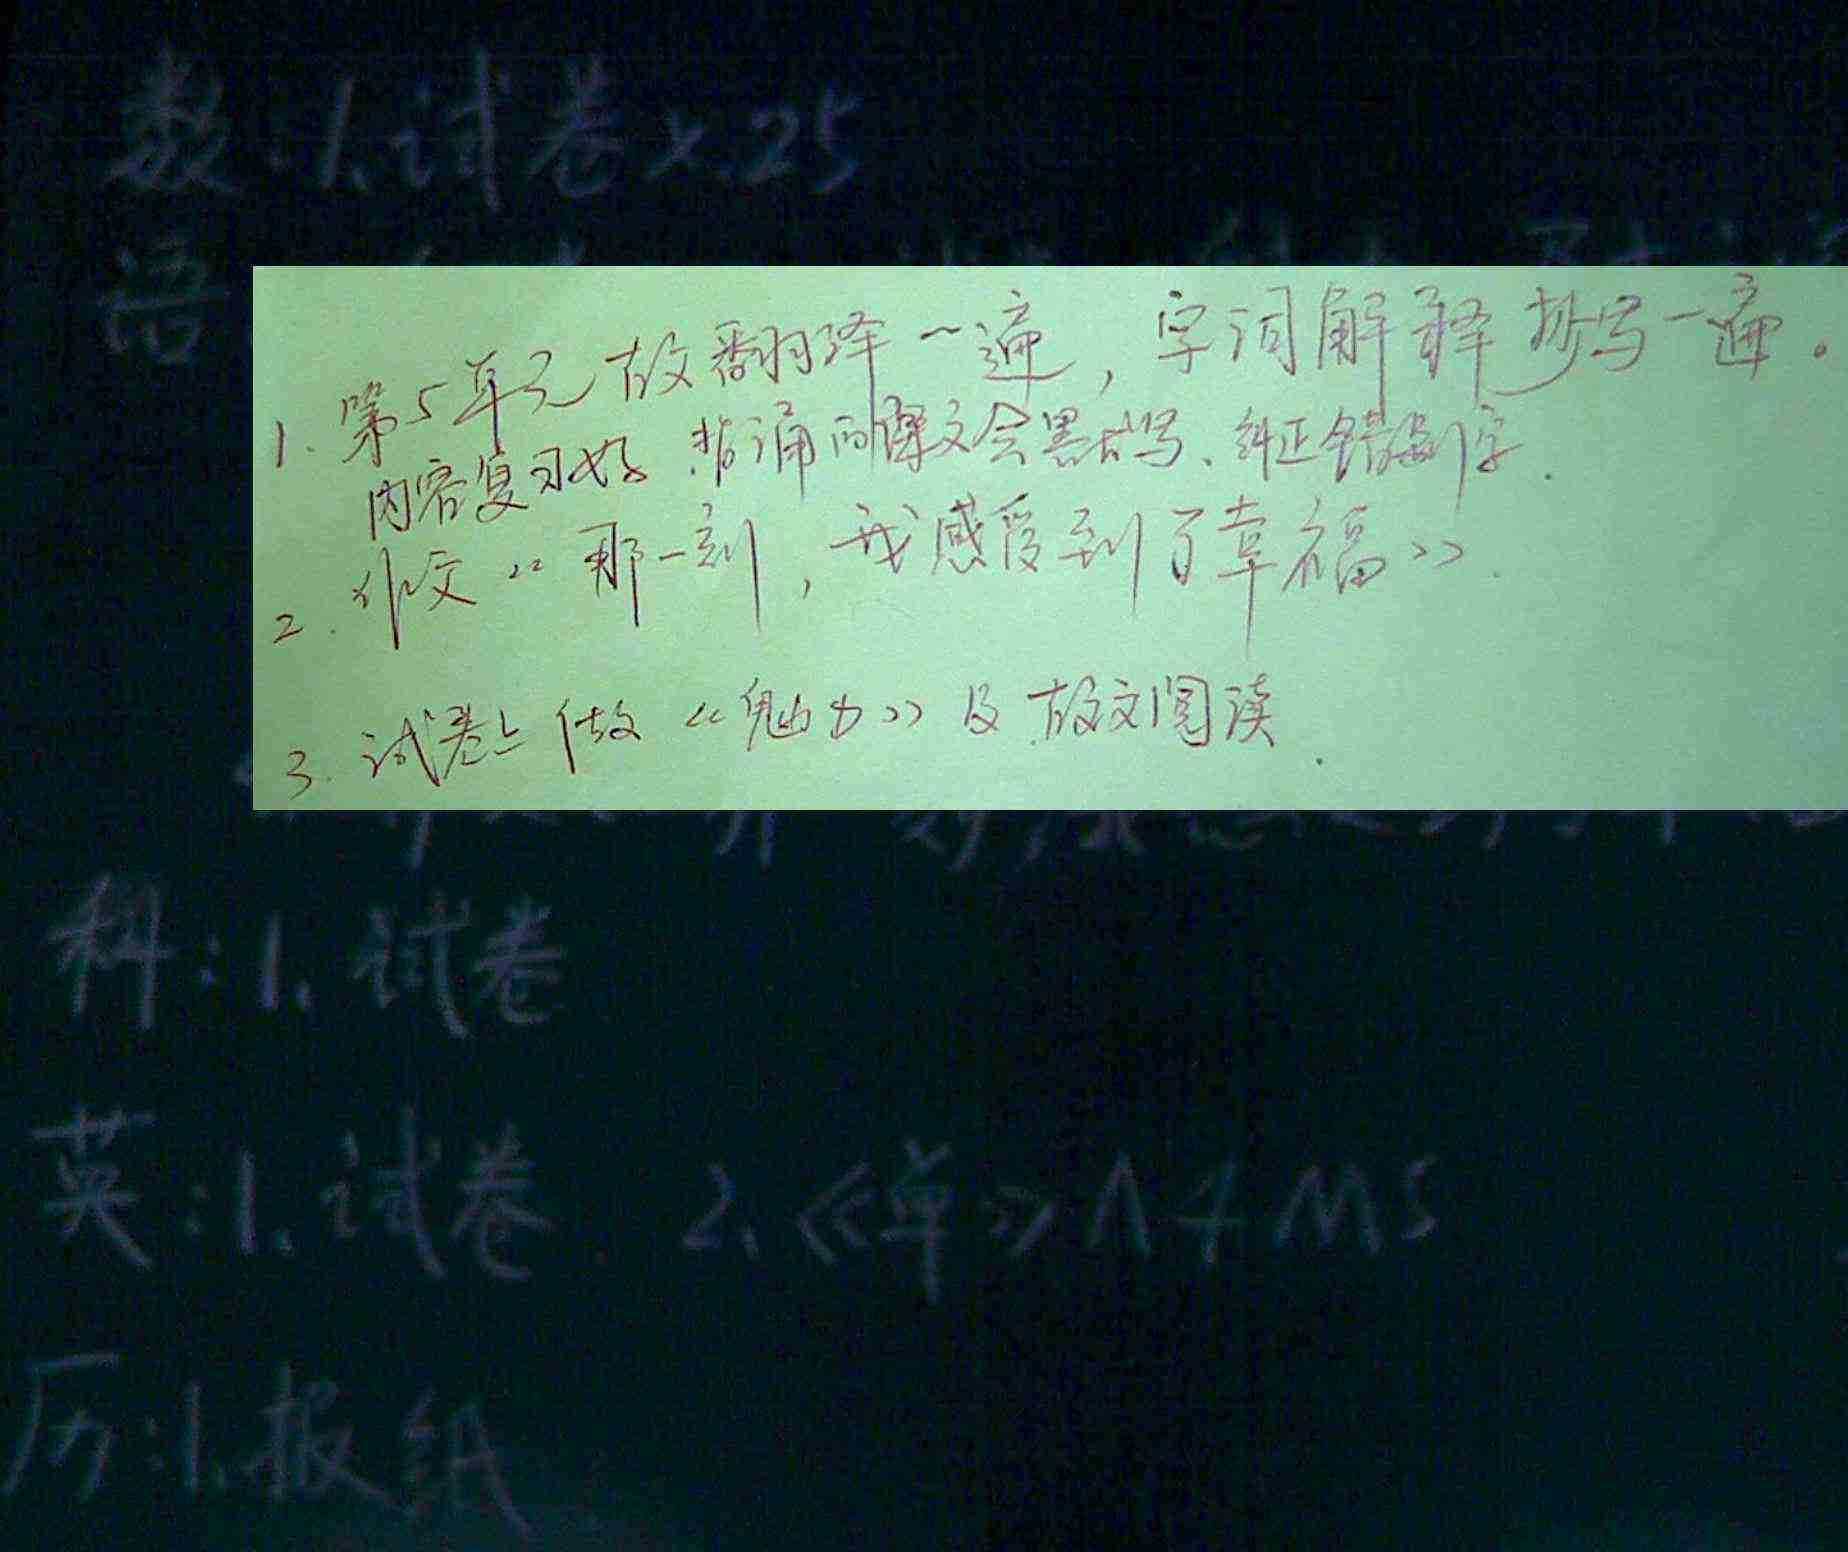 数:1.试卷×25
语
1. 第5单元故翻译一遍，字词解释抄写一遍。
内容复习好.背诵的课文会默写、纠正错别字.
2. 作文《那一刻，我感受到了幸福》.
3. 试卷上做《魅力》及故文阅读.
科:1.试卷
英:1.试卷 2.《单》M5
历:1.报纸